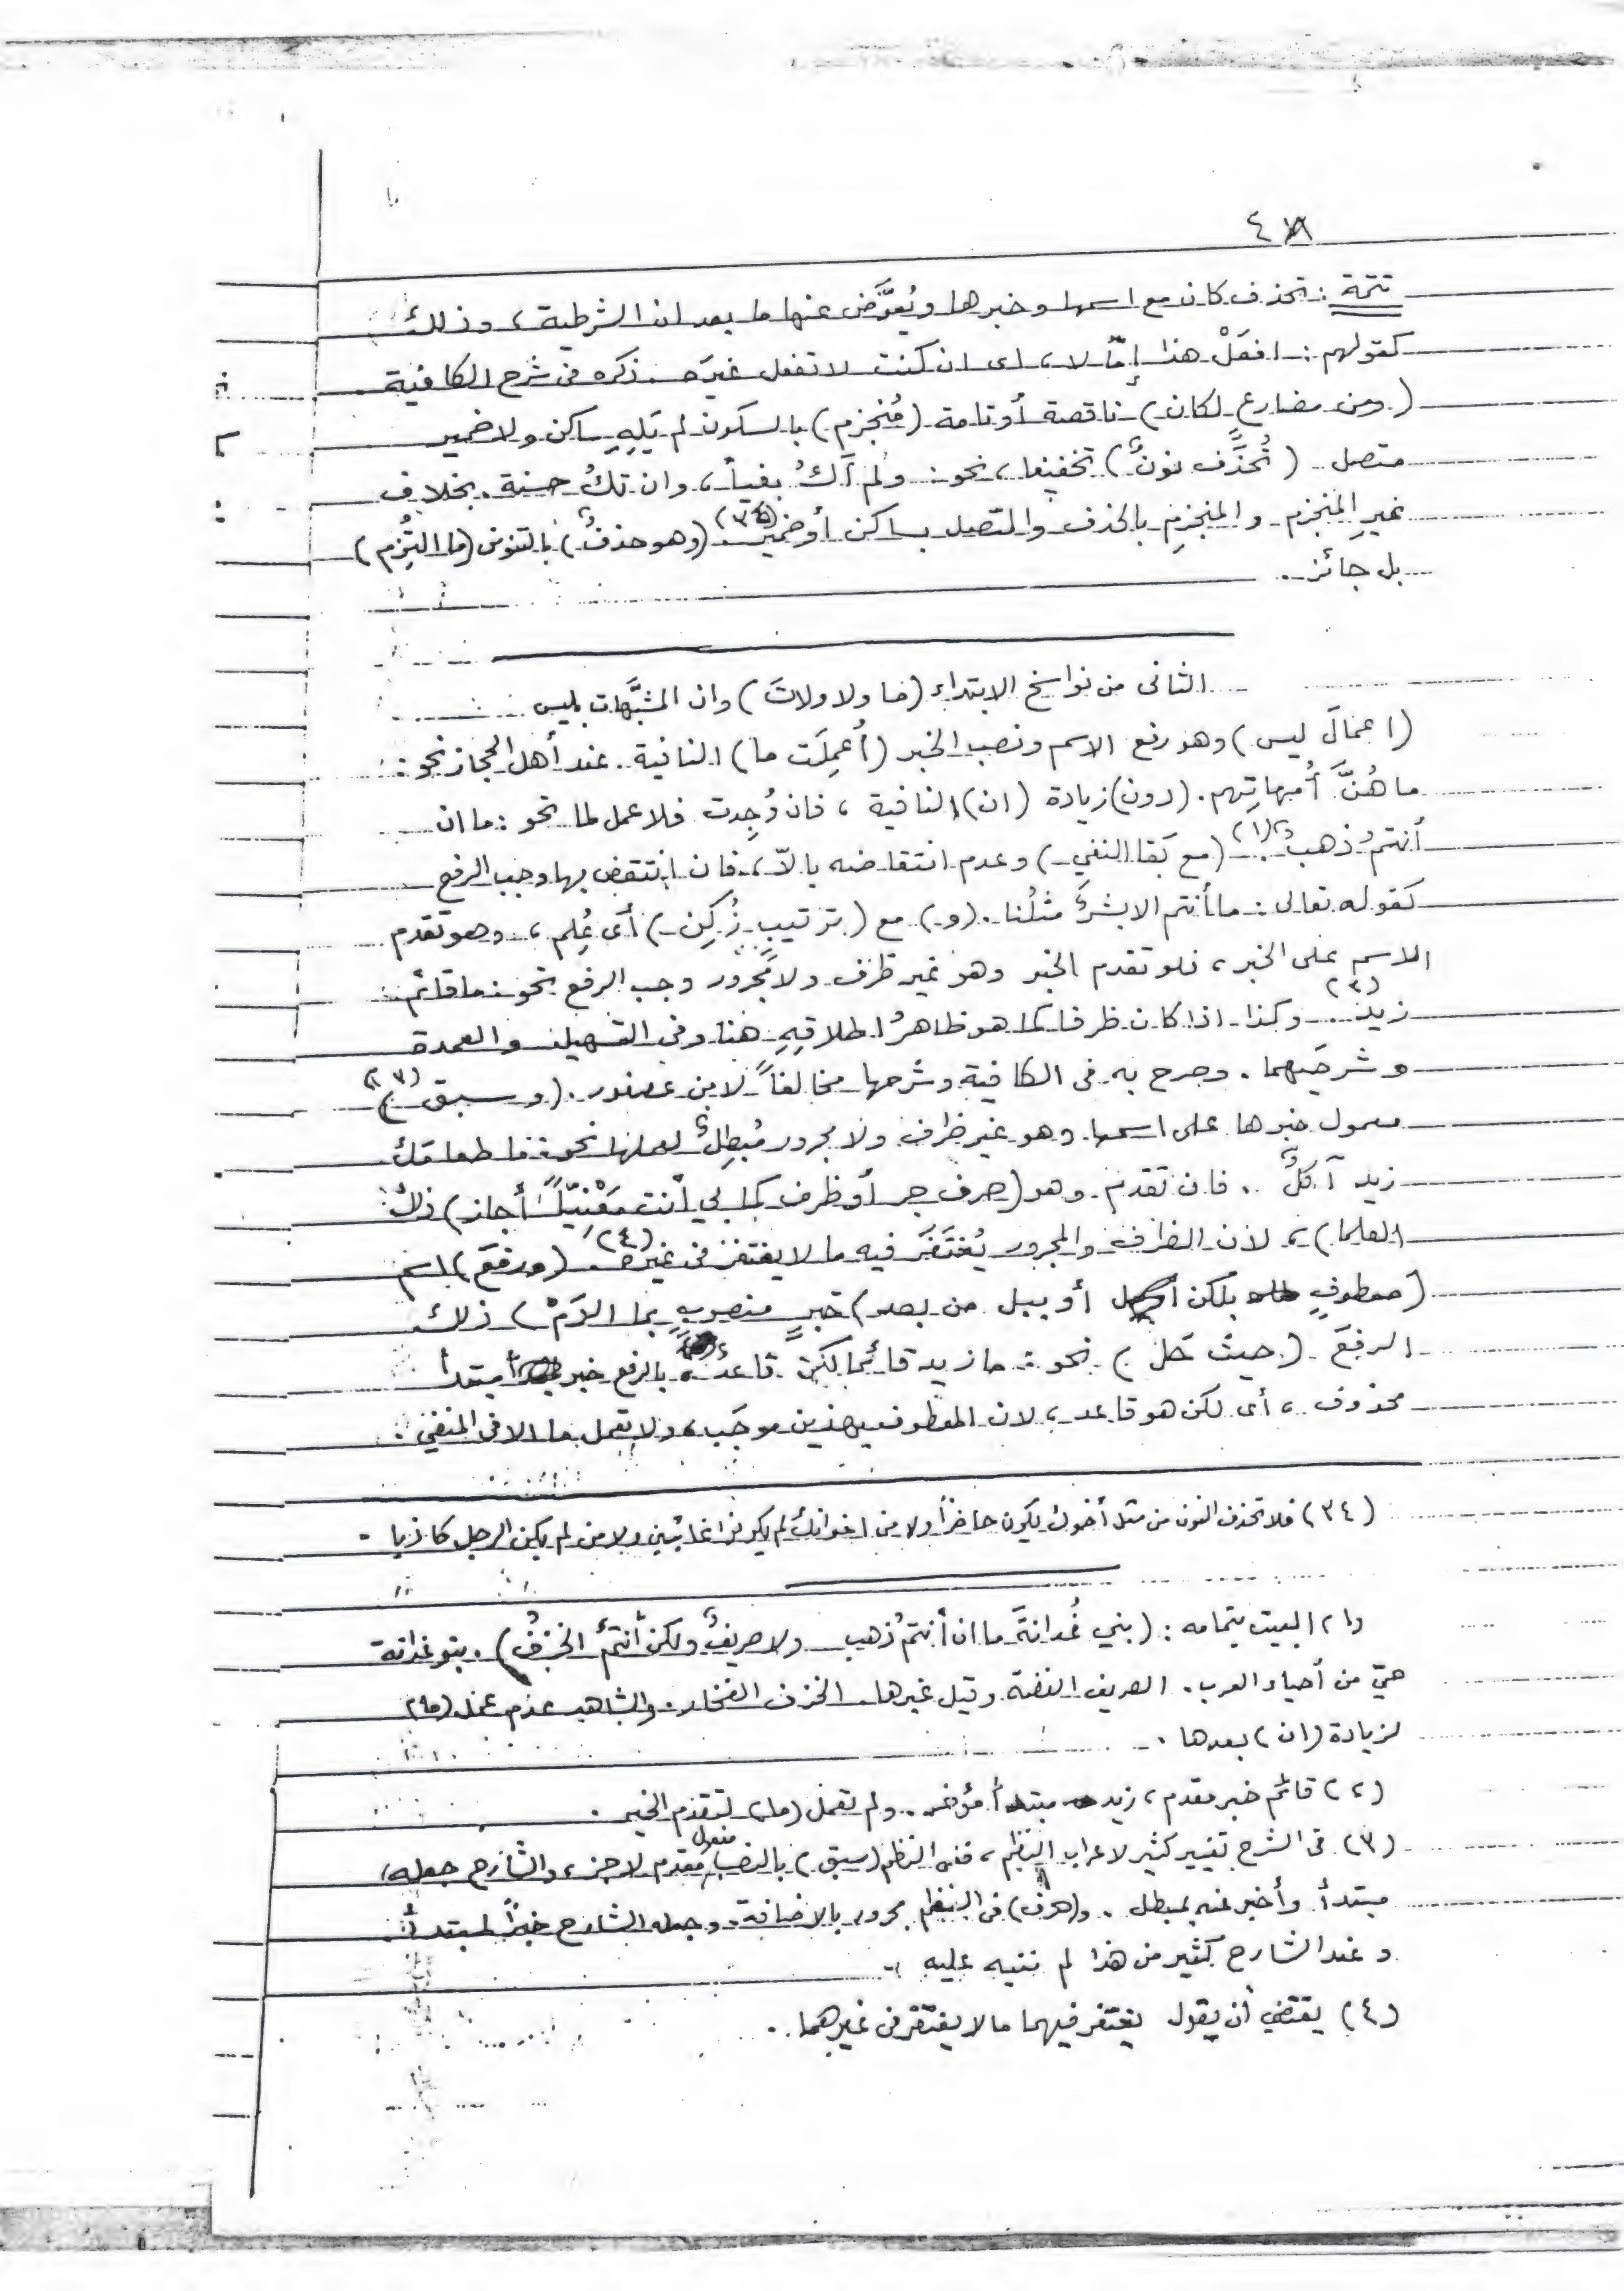 ٤٨
تتمة : تحذف كان مع اسمها وخبرها ويُعوَّض عنها ما بعد ان الشرطية ، وذلك
كقولهم : افعَلْ هذا إمّا لا ، اى ان كنت لا تفعل غيرَه . ذكره فى شرح الكافية .
(ومن مضارع لكان) ناقصة أو تامة (مُنجزم) بالسكون لم يَلِهِ ساكن ولا ضمير
متصل (تُحذَف نونٌ) تخفيفا ، نحو : ولم أكُ بغياً ، وان تكُ حسنة . بخلاف
غيرِ المنجزم والمنجزِم بالحذف والمتصل بساكن أو ضمير (٣٤) . (وهو حذفٌ) بالتنوين (ما التُزِم)
بل جائز .
الثانى من نواسخ الابتداء (ما ولا ولاتَ) وان المشبَّهات بليس
(اعمالَ ليس) وهو رفع الاسم ونصب الخبر (أُعمِلَت ما) النافية . عند أهل الحجاز نحو :
ما هُنَّ أمهاتِهم . (دون) زيادة (ان) النافية ، فان وُجِدت فلا عمل لما نحو : ما ان
أنتمُ ذهبٌ (١) . (مع بَقا النفي) وعدم انتقاضه بالاّ ، فان انتقض بها وجب الرفع
كقوله تعالى : ما أنتم الا بشرٌ مثلُنا . (و) مع (ترتيبٍ زُكِن) أى عُلِم ، وهو تقدم
الاسم على الخبر ، فلو تقدم الخبر وهو غير ظرف ولا مجرور وجب الرفع نحو : ما قائم
زيد (٢) . وكذا اذا كان ظرفا كما هو ظاهرُ اطلاقِهِ هنا وفى التسهيل والعمدة
وشرحَيهما . وصرح به فى الكافية وشرحها مخالفاً لابن عصفور . (وسبق) (٣)
معمول خبرها على اسمها وهو غير ظرف ولا مجرور مُبطِلٌ لعملها نحو : ما طعامَك
زيد آكلٌ . فان تقدم وهو (حرف جر أو ظرف كما بي أنت مَعْنِيّاً أجاز) ذلك
(العلما) ، لان الظرف والمجرور يُغتَفَر فيه ما لا يغتفر فى غيره (٤) . (ورفعَ) اسم
(معطوفٍ بلكن أو ببل من بعد) خبرٍ منصوبٍ بما الزَمْ) ذلك
الرفعَ (حيث حَل) نحو : ما زيد قائما لكن قاعدٌ ، بالرفع خبر مبتدأ
محذوف ، أى لكن هو قاعد ، لان المعطوف بهذين موجَب ، ولا تعمل ما الا فى المنفي .
(٣٤) فلا تحذف النون من مثل أخوك يكون حاضراً ولا من اخوانك لم يكونوا غائبين ولا من لم يكن الرجل كاذبا .
(١) البيت بتمامه : (بني غُدانةَ ما ان أنتمُ ذهب ولا صريفٌ ولكن أنتمُ الخزفُ) . بنو غدانة
حيّ من أحياء العرب . الصريف الفضة وقيل غيرها . الخزف الفخار . والشاهد عدم عمل (ما)
لزيادة (ان) بعدها .
(٢) قائم خبر مقدم ، زيد مبتدأ مؤخر . ولم تعمل (ما) لتقدم الخبر .
(٣) فى الشرح تغيير كثير لاعراب النظم ، ففى النظم (سبق) بالنصب مفعول مقدم لاجز ، والشارح جعله
مبتدأ وأخبر عنه بمبطل . و(حرف) فى النظم مجرور بالاضافة وجعله الشارح خبراً لمبتدأ .
وعند الشارح كثير من هذا لم ننبه عليه .
(٤) يقتضي أن يقول يغتفر فيهما ما لا يغتفر فى غيرهما .